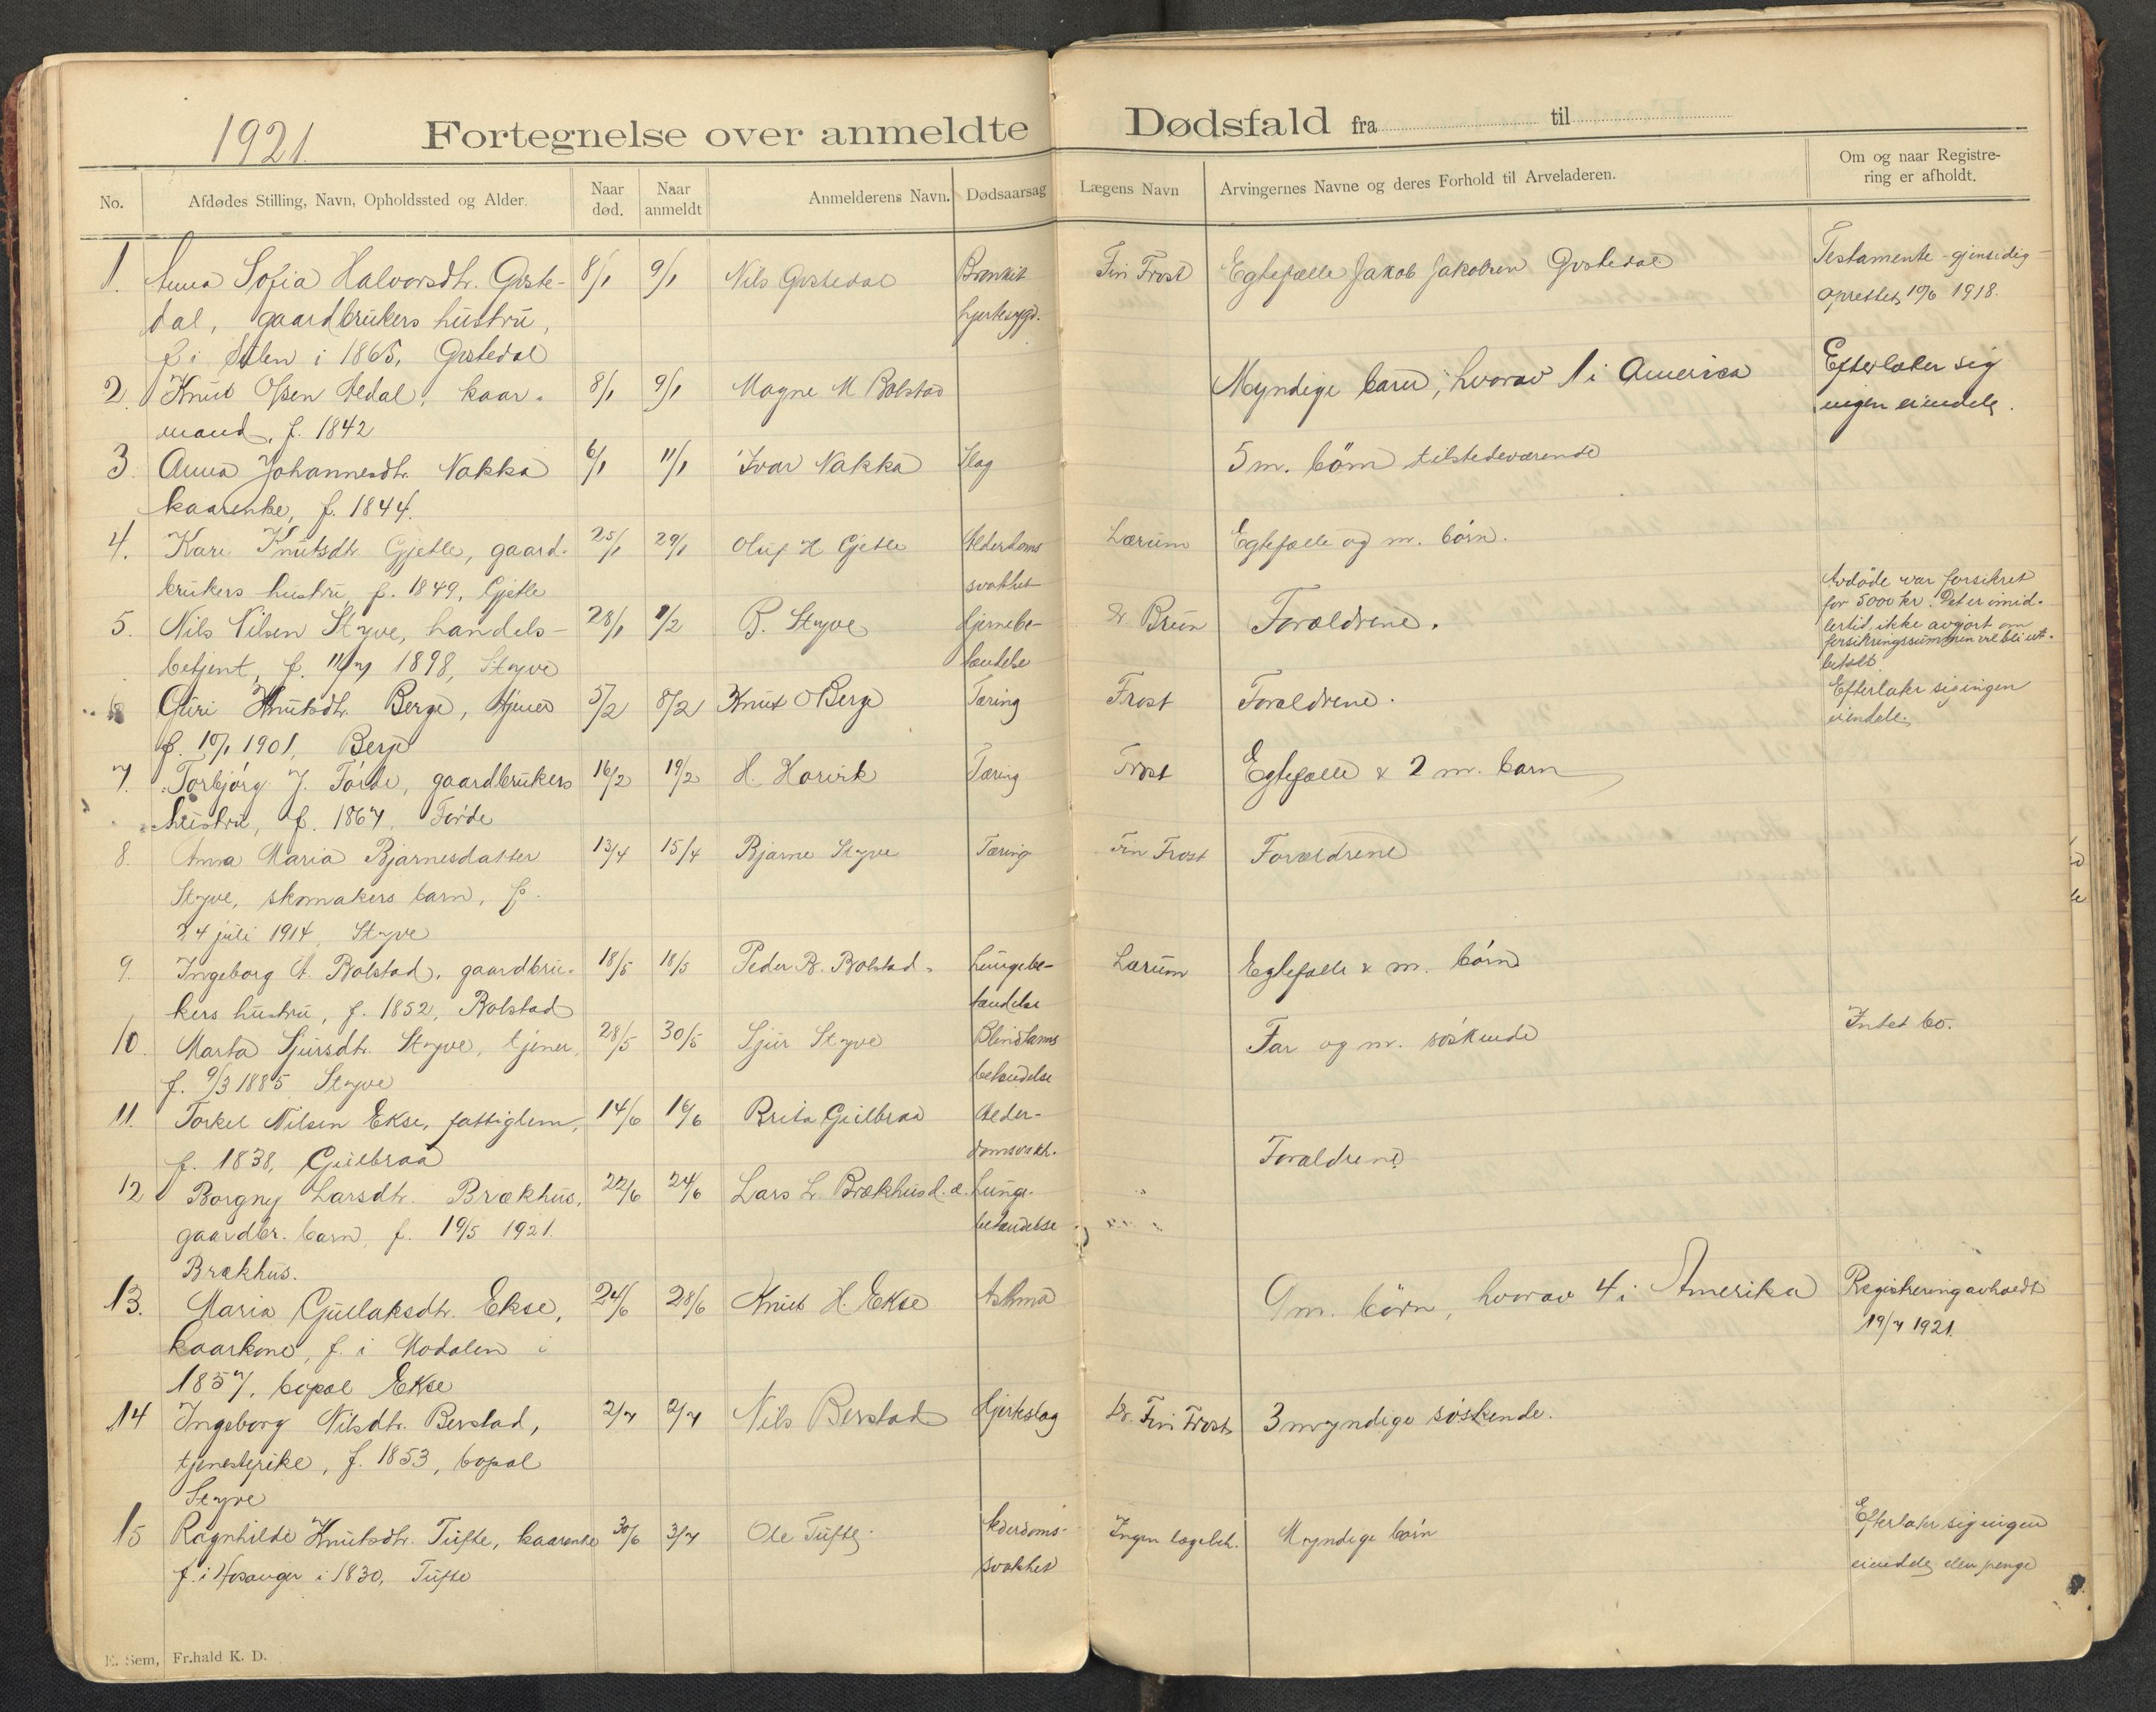 1921.
Fortegnelse over anmeldte Dødsfald fra til
No. Afdødes Stilling, Navn, Opholdssted og Alder. Naar død. Naar anmeldt Anmelderens Navn. Dødsaarsag Lægens Navn Arvingernes Navne og deres Forhold til Arveladeren. Om og naar Registrering er afholdt.
1. Anna Sofia Halvorsdtr. Guste- 8/1 9/1 Nils Gustedal Bronkit Fin Frost Egtefælle Jakob Jakobsen Gustedal Testamente - gjensidig -
dal, gaardbrukers hustru, hjertesygd. oprettet 10/6 1918.
f. i Stølen i 1865, Gustedal
2. Knut Olsen Aldal, kaar- 8/1 9/1 Magne M Bolstad Myndige barn, hvorav 1 i America Efterlater sig
mand, f. 1842 ingen eiendele.
3. Anna Johannesdtr. Nakka 6/1 11/1 Ivar Nakka Slag 5 m. börn tilstedeværende
kaarenke, f. 1844.
4. Kari Knutsdtr. Gjetle, gaard- 25/1 29/1 Oluf H Gjetle Alderdoms Lærum Egtefælle og m. börn.
brukers hustru, f. 1849, Gjetle svakhet
5. Nils Nilsen Styve, handels- 28/1 1/2 B. Styve Hjernebe- Dr Bruun Forældrene. Avdöde var forsikret
betjent, f. 11/7 1898, Styve tændelse for 5000 kr. Det er imid-
lertid ikke avgjort om
forsikringssummen vil bli ut-
betalt.
6 Guri Knutsdtr. Berge, tjener 5/2 8/2 Knut O Berge Tæring Frost Forældrene. Efterlater sig ingen
f. 10/1 1901, Berge eiendele.
7. Torbjörg J. Förde, gaardbrukers 16/2 19/2 H. Horvik Tæring Frost Egtefælle & 2 m. barn
hustru, f. 1867, Förde
8. Anna Maria Bjarnesdatter 13/4 15/4 Bjarne Styve Tæring Fin Frost Forældrene
Styve, skomakers barn, f.
24 juli 1914, Styve
9. Ingeborg A. Bolstad, gaardbru- 18/5 18/5 Peder B. Bolstad. Lungebe- Lærum Egtefælle & m. börn
kers hustru, f. 1852, Bolstad tændelse
10. Marta Sjursdtr. Styve, tjener, 28/5 30/5 Sjur Styve Blindtarms Far og m. söskende Intet bo.
f. 9/3 1885 Styve betændelse
11. Torkel Nilsen Ekse, fattiglem, 14/6 16/6 Brita Gullbraa Alder-
f. 1838, Gullbraa domssvakh.
12 Borgny Larsdtr. Brækhus, 22/6 24/6 Lars L. Brækhus d. æ. Lunge- Forældrene
gaardbr. barn, f. 19/5 1921. betændelse
Brækhus.
13. Maria Gullaksdtr. Ekse, 24/6 28/6 Knut H. Ekse Astma 9 m. börn, hvorav 4 i Amerika Registrering avholdt
kaarkone, f. i Modalen i 19/7 1921.
1857, bopæl Ekse
14 Ingeborg Nilsdtr. Berstad, 2/7 2/7 Nils Berstad Hjerteslag Dr. Fin Frost 3 myndige söskende.
tjenestepike, f. 1853, bopæl
Styve
15 Ragnhilde Knutsdtr. Tufte, kaarenke 30/6 3/7 Ole Tufte. Alderdoms- Ingen lægebeh. Myndige börn Efterlater sig ingen
f. i Hosanger i 1830, Tufte svakhet eiendele eller penge
E. Sem, Fr.hald K. D.